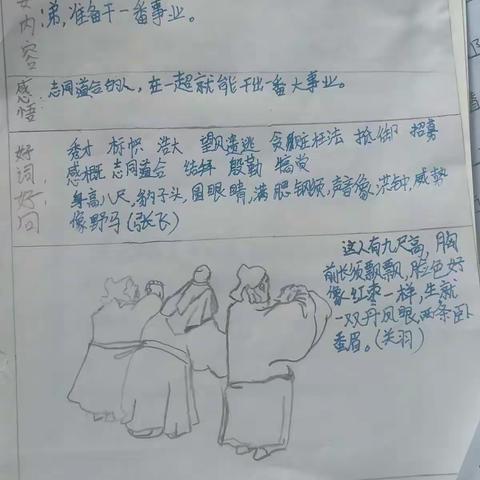 要内容
弟,准备干一番事业。
感悟:
志同道合的人,在一起就能干出一番大事业。
好词好句
秀才 标帜 浩大 望风逃跑 贪赃枉法 招募
感概 志同道合 结拜 殷勤 犒赏
身高八尺,豹子头,圆眼睛,满腮钢须,声音像洪钟,威势
像野马(张飞)
这人有九尺高,胸
前长须飘飘,脸色好
像红枣一样,生就
一双丹凤眼,两条卧
蚕眉。(关羽)